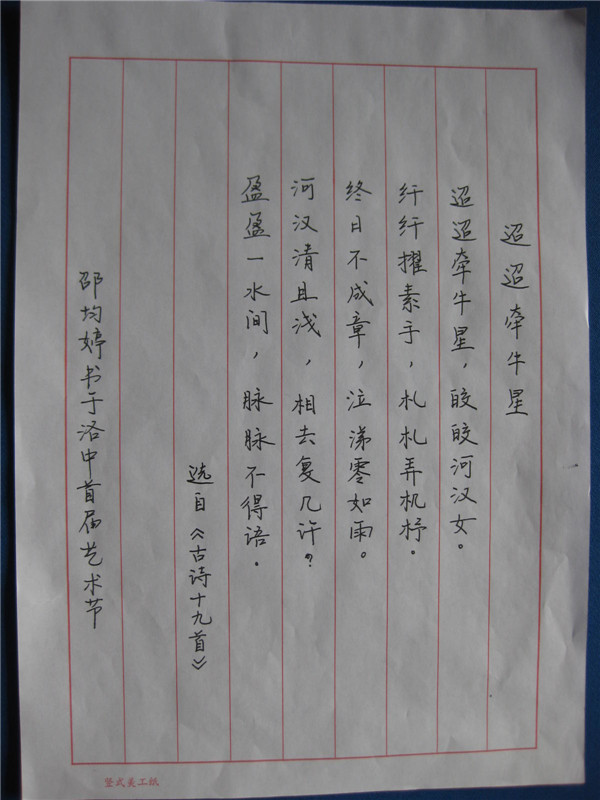 迢迢牵牛星
迢迢牵牛星，皎皎河汉女。
纤纤擢素手，札札弄机杼。
终日不成章，泣涕零如雨。
河汉清且浅，相去复几许？
盈盈一水间，脉脉不得语。
选自《古诗十九首》
邵均婷书于洛中首届艺术节
竖式美工纸